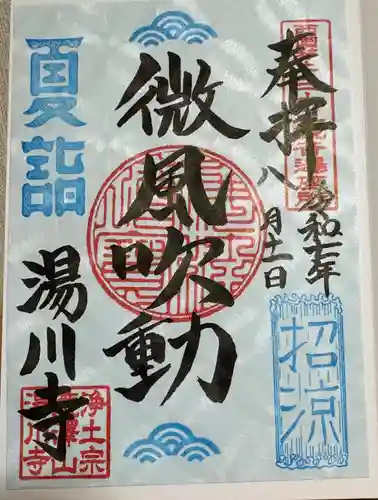 奉拝
令和七年
八月十一日
招涼
微風吹動
夏詣
湯川寺
浄土宗
川寺